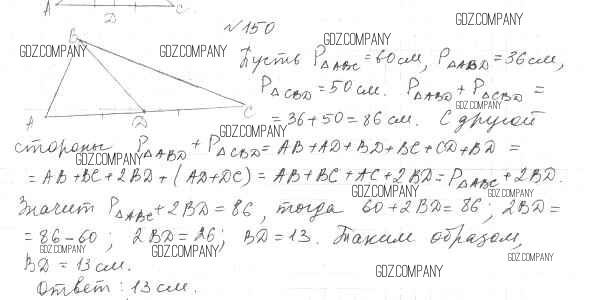 A D C
№150
GDZ.COMPANY
B
GDZ.COMPANY GDZ.COMPANY GDZ.COMPANY
Пусть P△ABC = 60 см, P△ABD = 36 см,
GDZ.COMPANY
P△CBD = 50 см. P△ABD + P△CBD =
GDZ.COMPANY
A D C = 36 + 50 = 86 см. С другой
GDZ.COMPANY
стороны P△ABD + P△CBD = AB + AD + BD + BC + CD + BD =
GDZ.COMPANY
= AB + BC + 2BD + (AD + DC) = AB + BC + AC + 2BD = P△ABC + 2BD.
GDZ.COMPANY GDZ.COMPANY
Значит P△ABC + 2BD = 86, тогда 60 + 2BD = 86; 2BD =
= 86 - 60; 2BD = 26; BD = 13. Таким образом,
GDZ.COMPANY GDZ.COMPANY GDZ.COMPANY
BD = 13 см.
GDZ.COMPANY
Ответ: 13 см.
GDZ.COMPANY